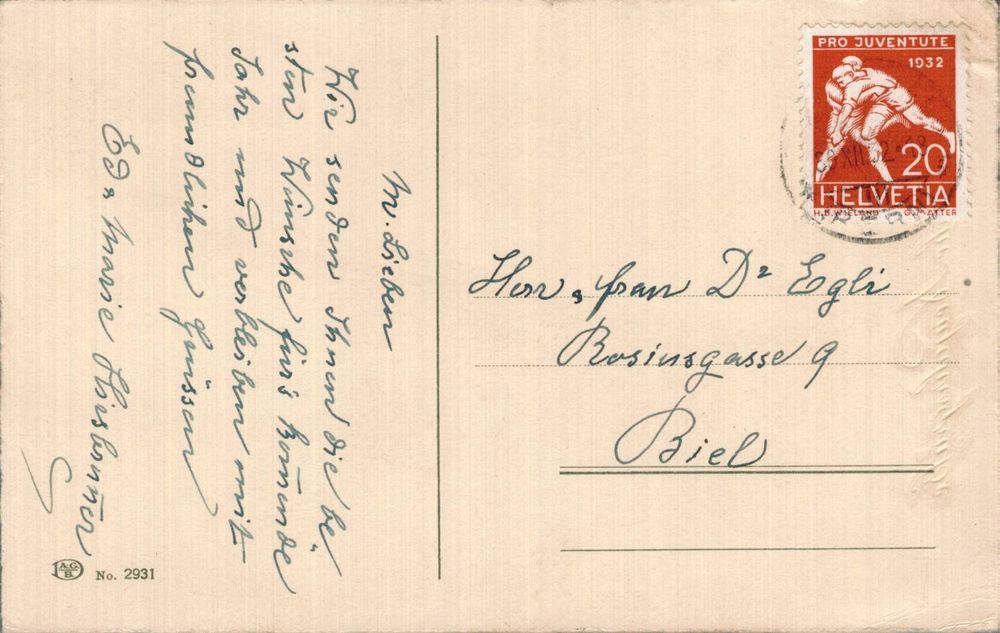 M. Lieben
Wir senden Ihnen die be
sten Wünsche für's kom̄ende
Jahr und verbleiben mit
freundlichen Grüssen
Ed & Marie
PRO JUVENTUTE
1932
20
HELVETIA
H.B. WIELAND G. MATTER
XII.32
Herr & frau Dr Egli
Rosiusgasse 9
Biel
AGB No. 2931